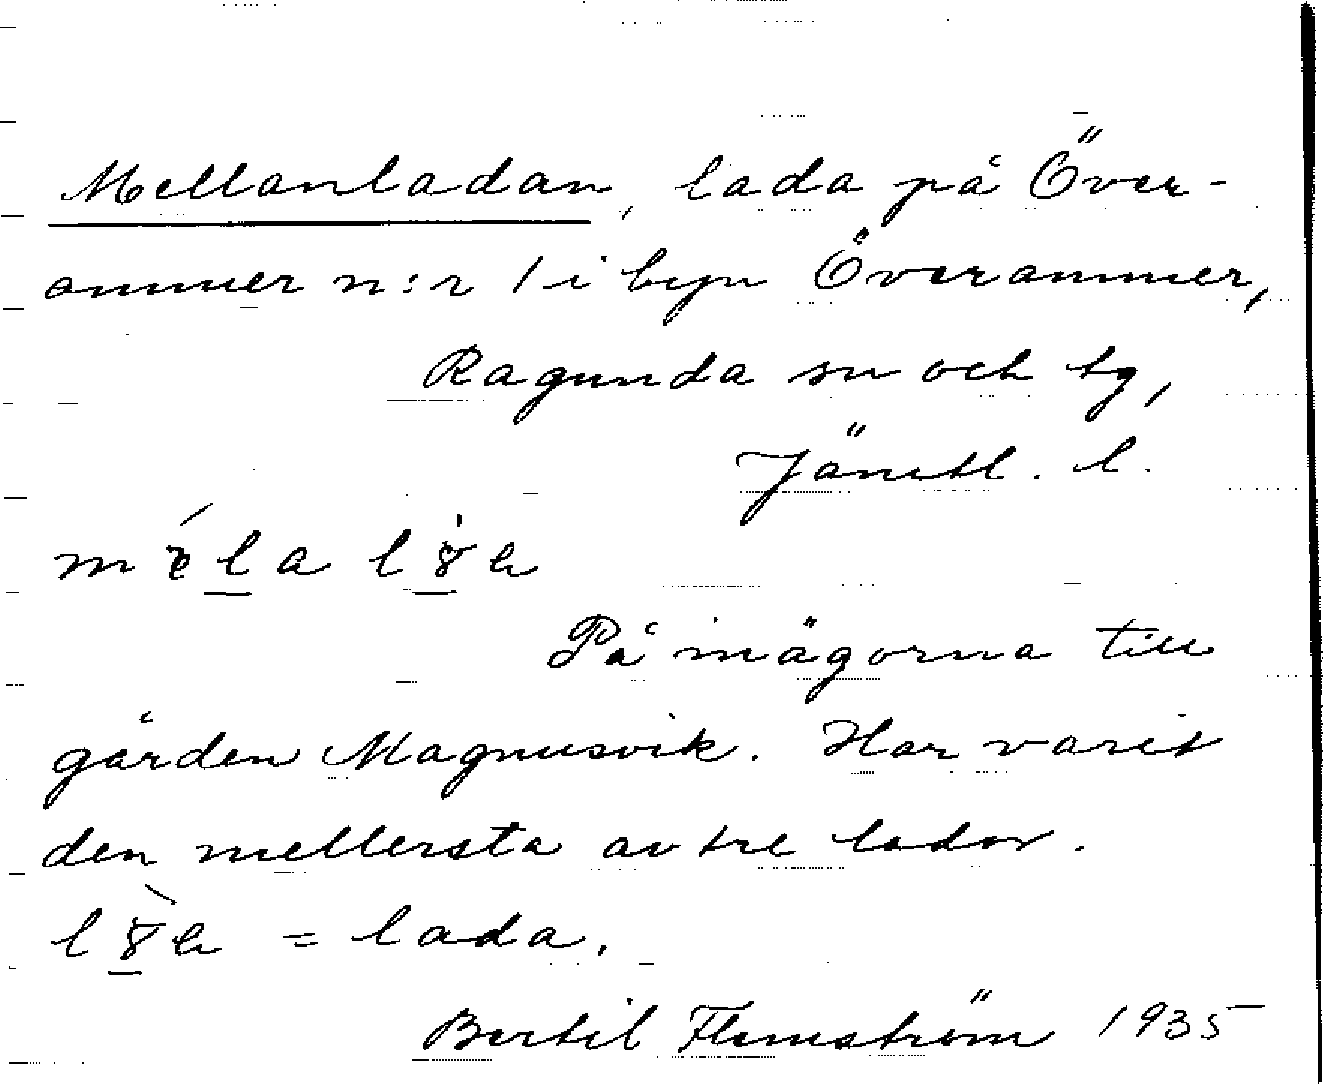 Mellanladan, lada på Över-
ammer n:r 1 i byn Överammer,
Ragunda sn och tg,
Jämtl. l.
På inägorna till
gården Magnusvik. Har varit
den mellersta av tre lador.
= lada.
Bertil Flemström 1935